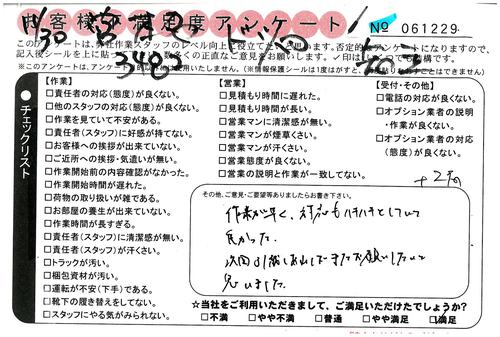 お客様満足度アンケート
№ 061229
11/30
3482
このアンケートは、弊社作業スタッフのレベル向上に役立てた
アンケートになりますので、
※このアンケートは、アンケート
（※情報保護シールは1度はがすと、
ことはできません）
チェックリスト
【作業】
□責任者の対応（態度）が良くない。
□他のスタッフの対応（態度）が良くない。
□作業を見ていて不安がある。
□責任者（スタッフ）に好感が持てない。
□お客様への挨拶が出来ていない。
□ご近所への挨拶・気遣いが無い。
□作業開始前の内容確認がなかった。
□作業開始時間が遅れた。
□荷物の取り扱いが雑である。
□お部屋の養生が出来ていない。
□作業時間が長すぎる。
□責任者（スタッフ）に清潔感が無い。
□責任者（スタッフ）が汗くさい。
□トラックが汚い。
□梱包資材が汚い。
□運転が不安（下手）である。
□靴下の履き替えをしてない。
□スタッフにやる気がみられない。
【営業】
□見積もり時間に遅れた。
□見積もり時間が長い。
□営業マンに清潔感が無い。
□営業マンが煙草くさい。
□営業マンが汗くさい。
□営業態度が良くない。
□営業の説明と作業が一致してない。
【受付・その他】
□電話の対応が良くない。
□オプション業者の説明
・作業が良くない。
□オプション業者の対応
（態度）が良くない。
その他、ご意見・ご要望等ありましたらお書き下さい。
作業が早く、対応もハキハキとしていて
良かった。
次回引越し
またお願いしたいと
思いました。
☆当社をご利用いただきまして、ご満足いただけたでしょうか？
□不満 □やや不満 □普通 □やや満足 □満足